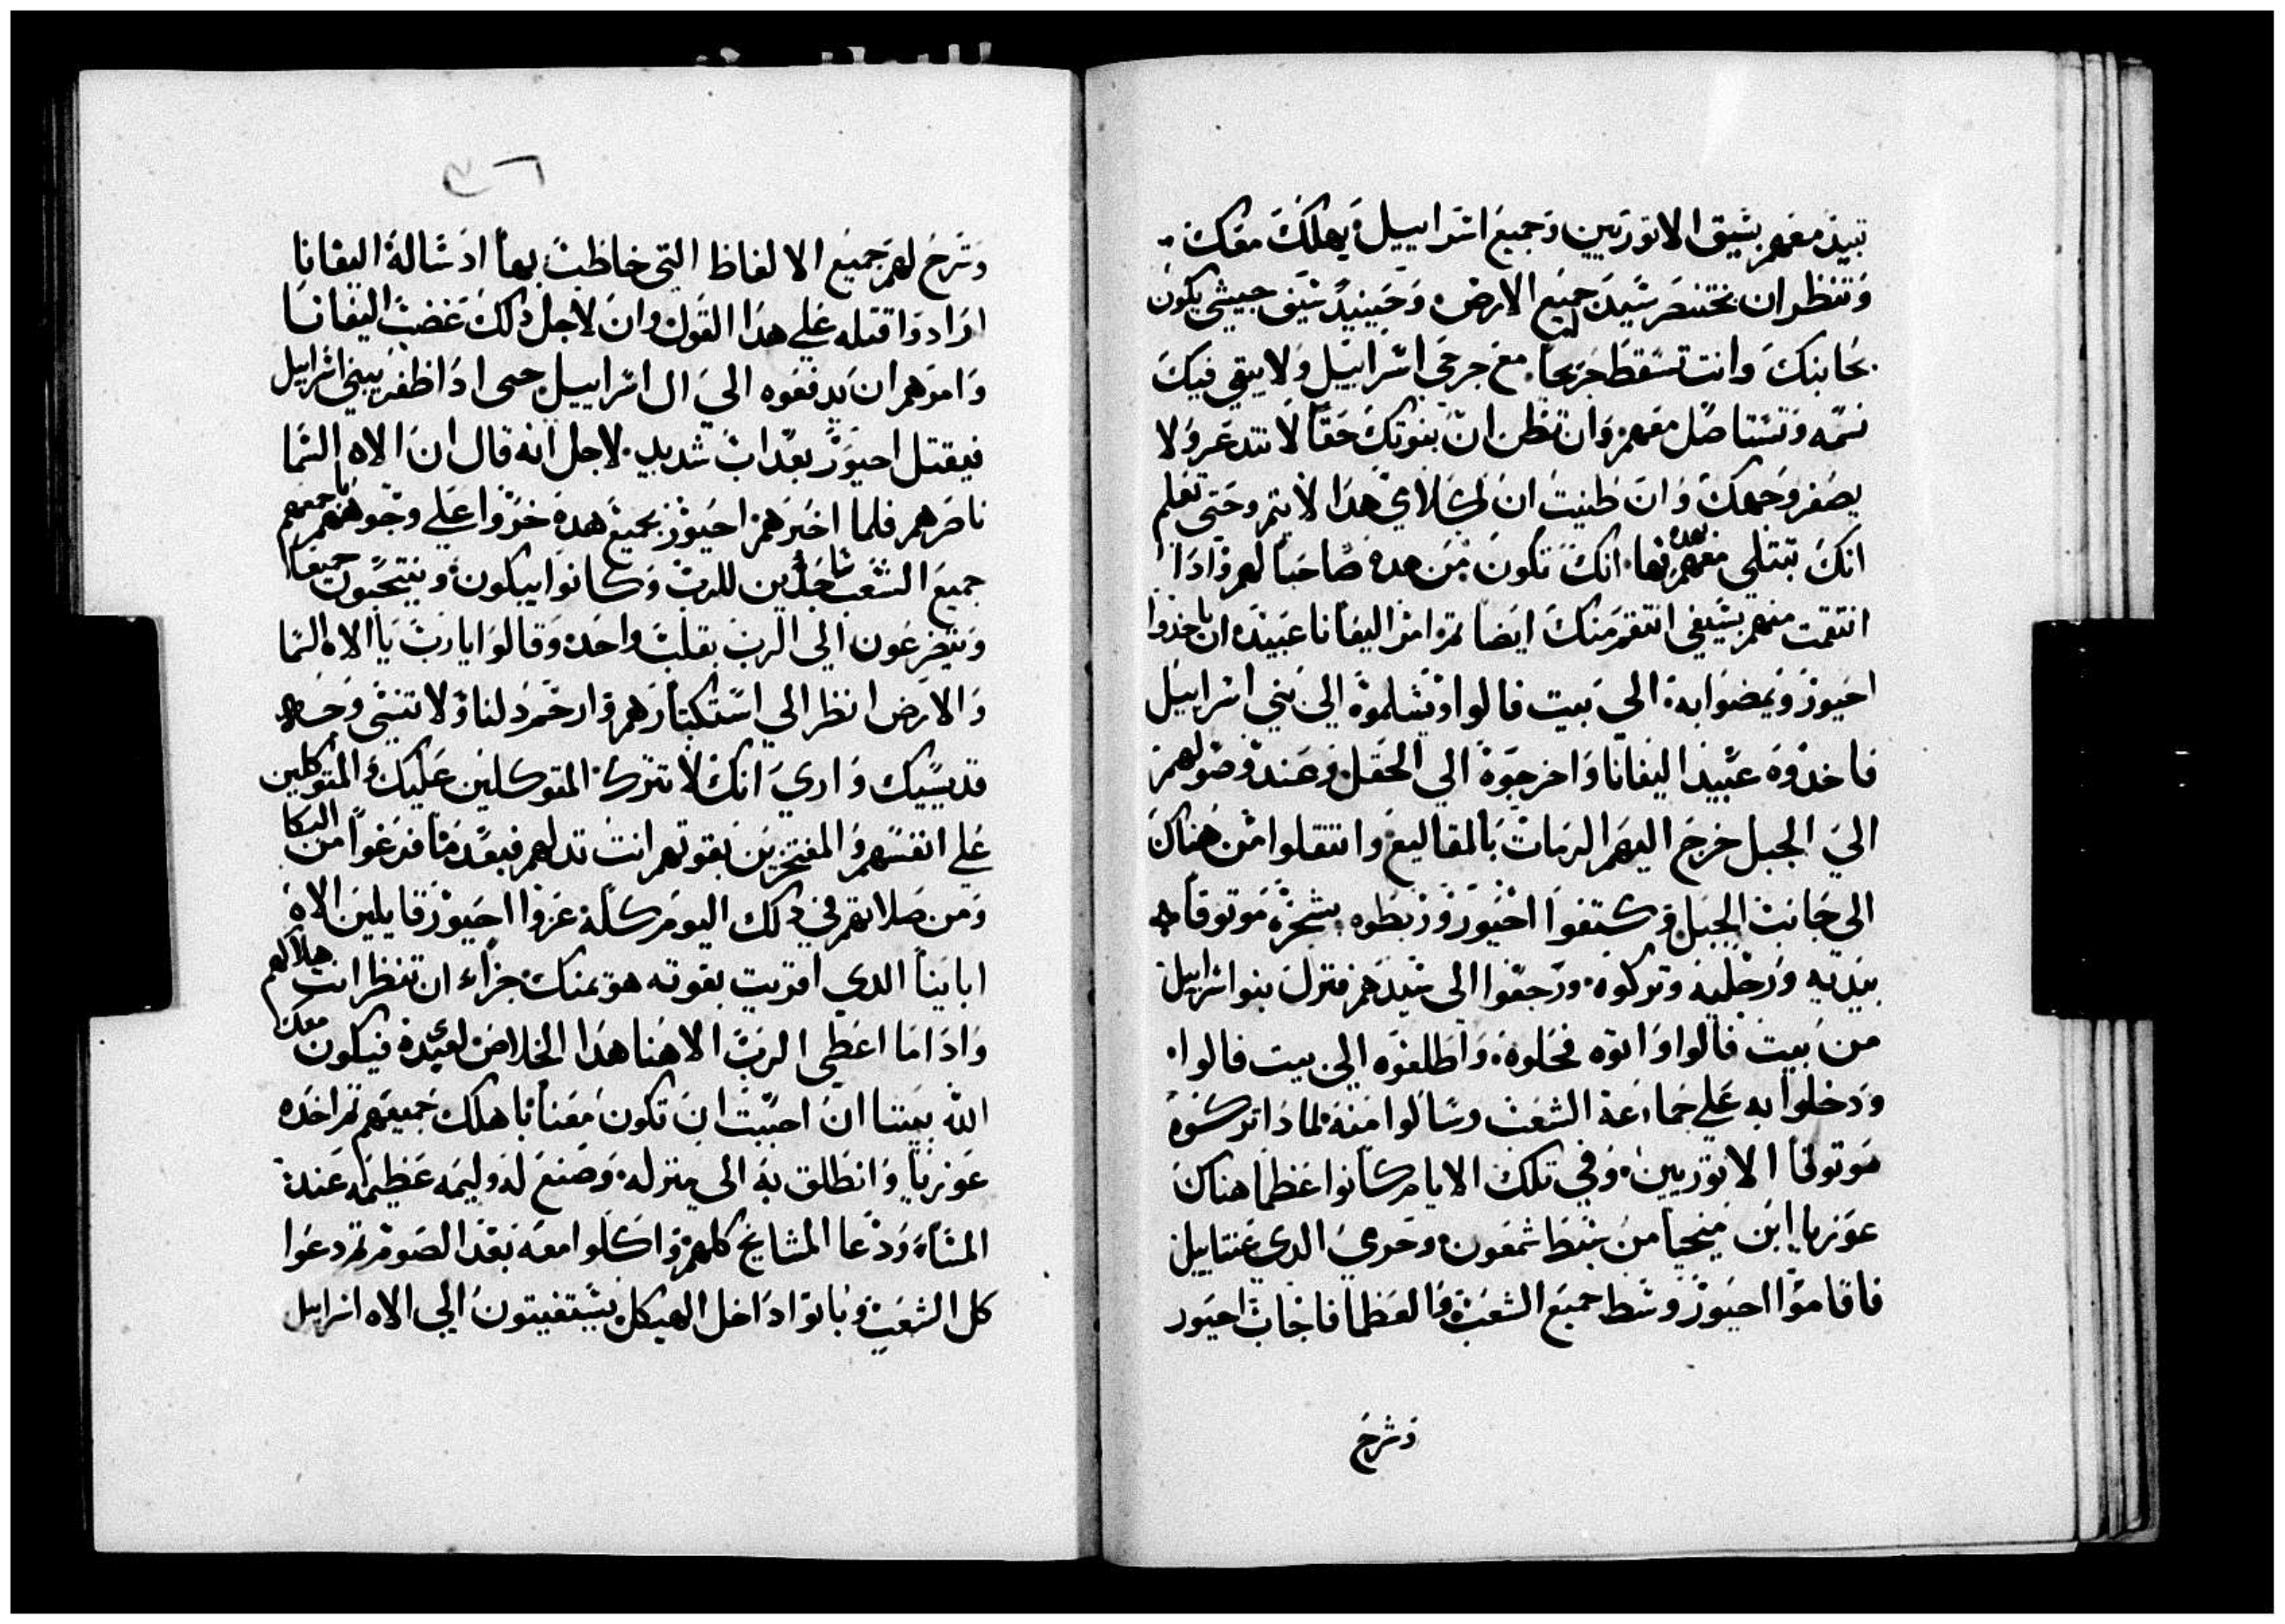 تبيد معهم بسيق الاتوريين وجميع اسراييل يهلك معك
وتنظر ان بختنصر سيد جميع الارض وحينيد سيف جيشي يكون
بجانبك وانت تسقط جريحا مع جرحي اسراييل ولا يبقي فيك
نسمه وتستاصل معهم وان تظن ان بنوتك حقا لا تتدعر ولا
يصفر وجهك وان ظنيت ان كلامي هدا لا يتم وحتي تعلم
انك تبتلي معهم بهده انك تكون من هده صاحبا لهم وادا
انتقمت منهم بسيفي انتقم منك ايضا تم امر اليفانا عبيده ان ياخدوا
احيور ويمضوا به الي بيت فالوا ويسلموه الي بني اسراييل
فاخدوه عبيد اليفانا واخرجوه الي الحقل وعند وصولهم
الي الجبل خرج اليهم الرمات بالمقاليع وانتقلوا من هناك
الي جانب الجبل وكتفوا احيور وربطوه بشجره موتوقا
بيديه ورجليه وتركوه ورجعوا الي سيدهم فنزل بنو اسراييل
من بيت فالوا واتوه فحلوه واطلقوه الي بيت فالوا
ودخلوا به علي جماعة الشعب وسالوا منه لمادا تركوه
موتوقا الاتوريين وفي تلك الايام كانوا عظما هناك
عوزيا ابن ميخيا من سبط شمعون وحرمي الدي غتناييل
فاقاموا احيور وسط جميع الشعب والعظما فاجاب احيور
وشرح
وشرح لهم جميع الالفاظ التي خاطب بها اد ساله اليفانا
ارادوا قتله علي هدا القول وان لاجل دلك غضب اليفانا
وامرهم ان يدفعوه الي ال اسراييل حتي ادا ظفر ببني اسراييل
فيقتل احيور بعداب شديد لاجل انه قال ان الاه السما
ناصرهم فلما اخبرهم احيور بجميع هده خروا علي وجوههم باجمعهم
جميع الشعب ساجدين للرب وكانوا يبكون وينتحبون جميعا
ويتضرعون الي الرب بقلب واحد وقالوا يا رب يا الاه السما
والارض انظر الي استكبارهم وارحم دلنا ولا تنسي وجه
قديسيك واري انك لا تترك المتوكلين عليك والمتوكلين
علي انفسهم والمفتخرين بقوتهم انت تدلهم فبعد ما فرغوا من البكا
ومن صلاتهم في دلك اليوم كله عزوا احيور قايلين الاه
اباينا الدي اقريت بقوته هو يمنك جزاء ان تنظر انت هلاكهم
وادا ما اعطي الرب الاهنا هدا الخلاص لعبيده فيكون معك
الله بيننا ان احببت ان تكون معنا باهلك جميعهم تم اخده
عوزيا وانطلق به الي منزله وصنع له وليمه عظيمه عند
المساء ودعا المشايخ كلهم واكلوا معه بعد الصوم تم دعوا
كل الشعب وباتوا داخل الهيكل يستغيتون الي الاه اسراييل